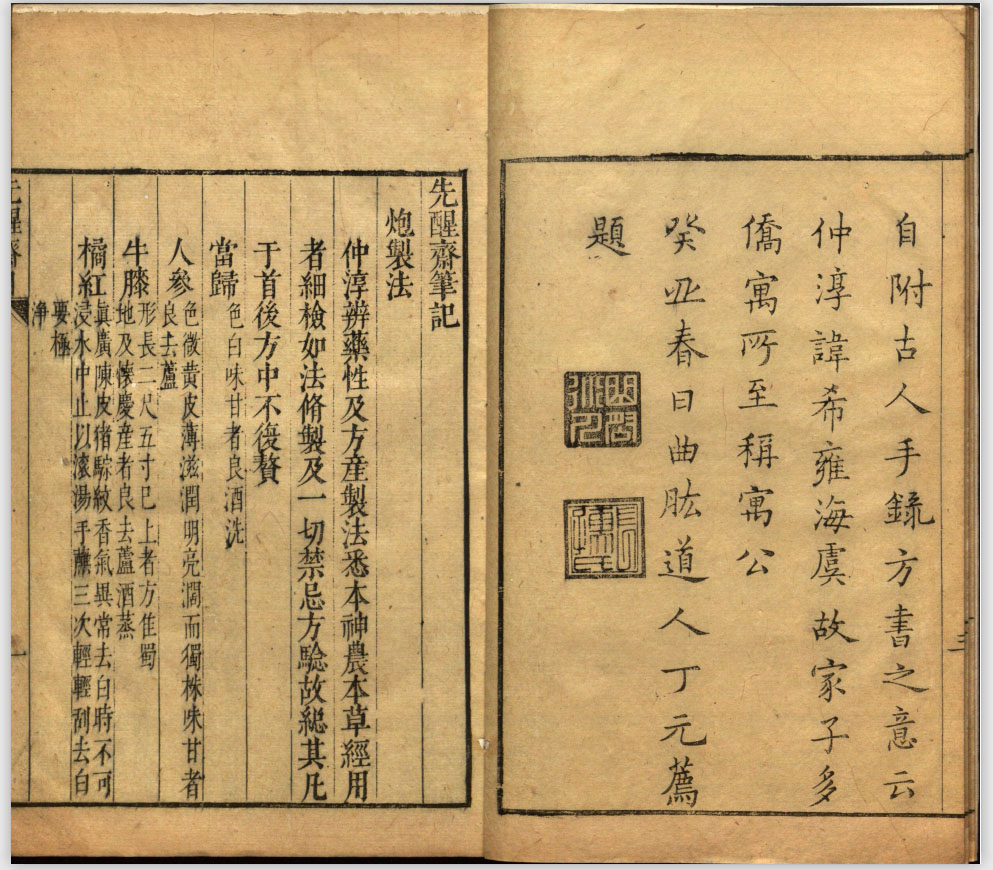 自附古人手錄方書之意云
仲淳諱希雍海虞故家子多
僑寓所至稱寓公
癸丑春日曲肱道人丁元薦
題
三
先醒齋筆記
炮製法
仲淳辨藥性及方產製法悉本神農本草經用
者細檢如法脩製及一切禁忌方驗故總其凡
于首後方中不復贅
當歸 色白味甘者良酒洗
人參 色微黃皮薄滋潤明亮濶而獨株味甘者
良去蘆
牛膝 形長二尺五寸已上者方佳蜀
地及懷慶產者良去蘆酒蒸
橘紅 眞廣陳皮猪騌紋香氣異常去白時不可
浸水中止以滾湯手蘸三次輕輕刮去白
要極
淨
先醒齋
一